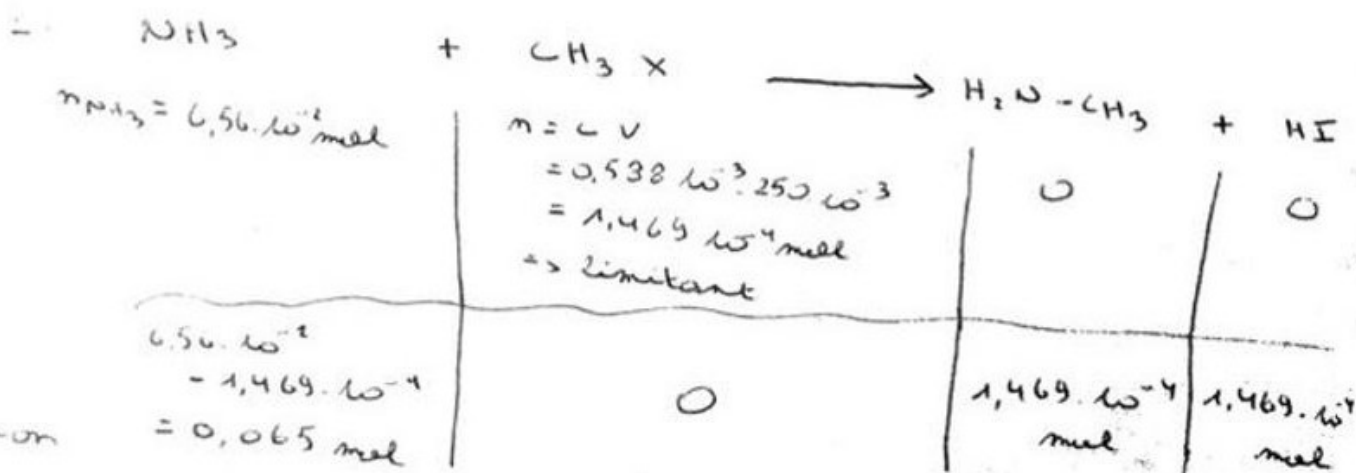 NH3 + CH3 X → H2N-CH3 + HI
nNH3 = 6,56.10⁻² mol
n = C V
= 0,538 10⁻³.250 10⁻³
= 1,469 10⁻⁴ mol
=> Limitant
0
0
6,56.10⁻²
- 1,469.10⁻⁴
= 0,065 mol
0
1,469.10⁻⁴
mol
1,469.10⁻⁴
mol